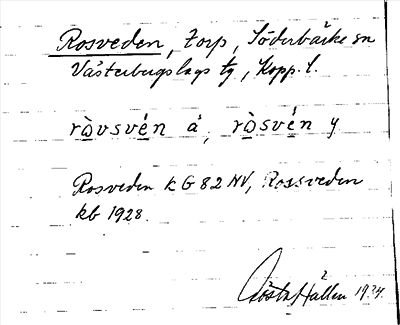 Rosveden, torp, Söderbärke sn
Västerbergslags tg, Kopp. l.
ràvsvén ä, ròsvén y
Rosveden k G 82 NV, Rossveden
kb 1928.
Gösta Hallen 1934.